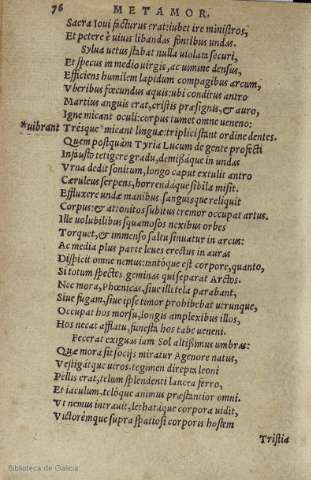 76 METAMOR.
Sacra Ioui facturus erat: iubet ire ministros,
Et petere è uiuis libandas fontibus undas.
Sylua uetus stabat nulla uiolata securi,
Et specus in medio uirgis, ac uimine densus,
Efficiens humilem lapidum compagibus arcum,
Vberibus fœcundus aquis: ubi conditus antro
Martius anguis erat, cristis præsignis, & auro,
Igne micant oculi: corpus tumet omne ueneno:
*uibrant Trésque *micant linguæ: triplici stant ordine dentes.
Quem postquàm Tyria Lucum de gente profecti
Infausto tetigere gradu, demissaque in undas
Vrna dedit sonitum, longo caput extulit antro
Cæruleus serpens, horrendaque sibila misit.
Effluxere undæ manibus, sanguisque reliquit
Corpus: & attonitos subitus tremor occupat artus.
Ille uolubilibus squamosos nexibus orbes
Torquet, & immenso saltu sinuatur in arcum:
Ac media plus parte leues erectus in auras
Dispicit omne nemus: tantóque est corpore, quanto,
Si totum spectes, geminas qui separat Arctos.
Nec mora, Phœnicas, siue illi tela parabant,
Siue fugam, siue ipse timor prohibebat utrunque,
Occupat hos morsu, longis amplexibus illos,
Hos necat afflatu, funesta hos tabe ueneni.
Fecerat exiguas iam Sol altissimus umbras:
Quæ mora sit socijs miratur Agenore natus,
Vestigatque uiros. tegimen direpta leoni
Pellis erat, telum splendenti lancea ferro,
Et iaculum, telóque animus præstantior omni.
Vt nemus intrauit, lethataque corpora uidit,
Victoremque supra spatiosi corporis hostem
Tristia
Biblioteca de Galicia